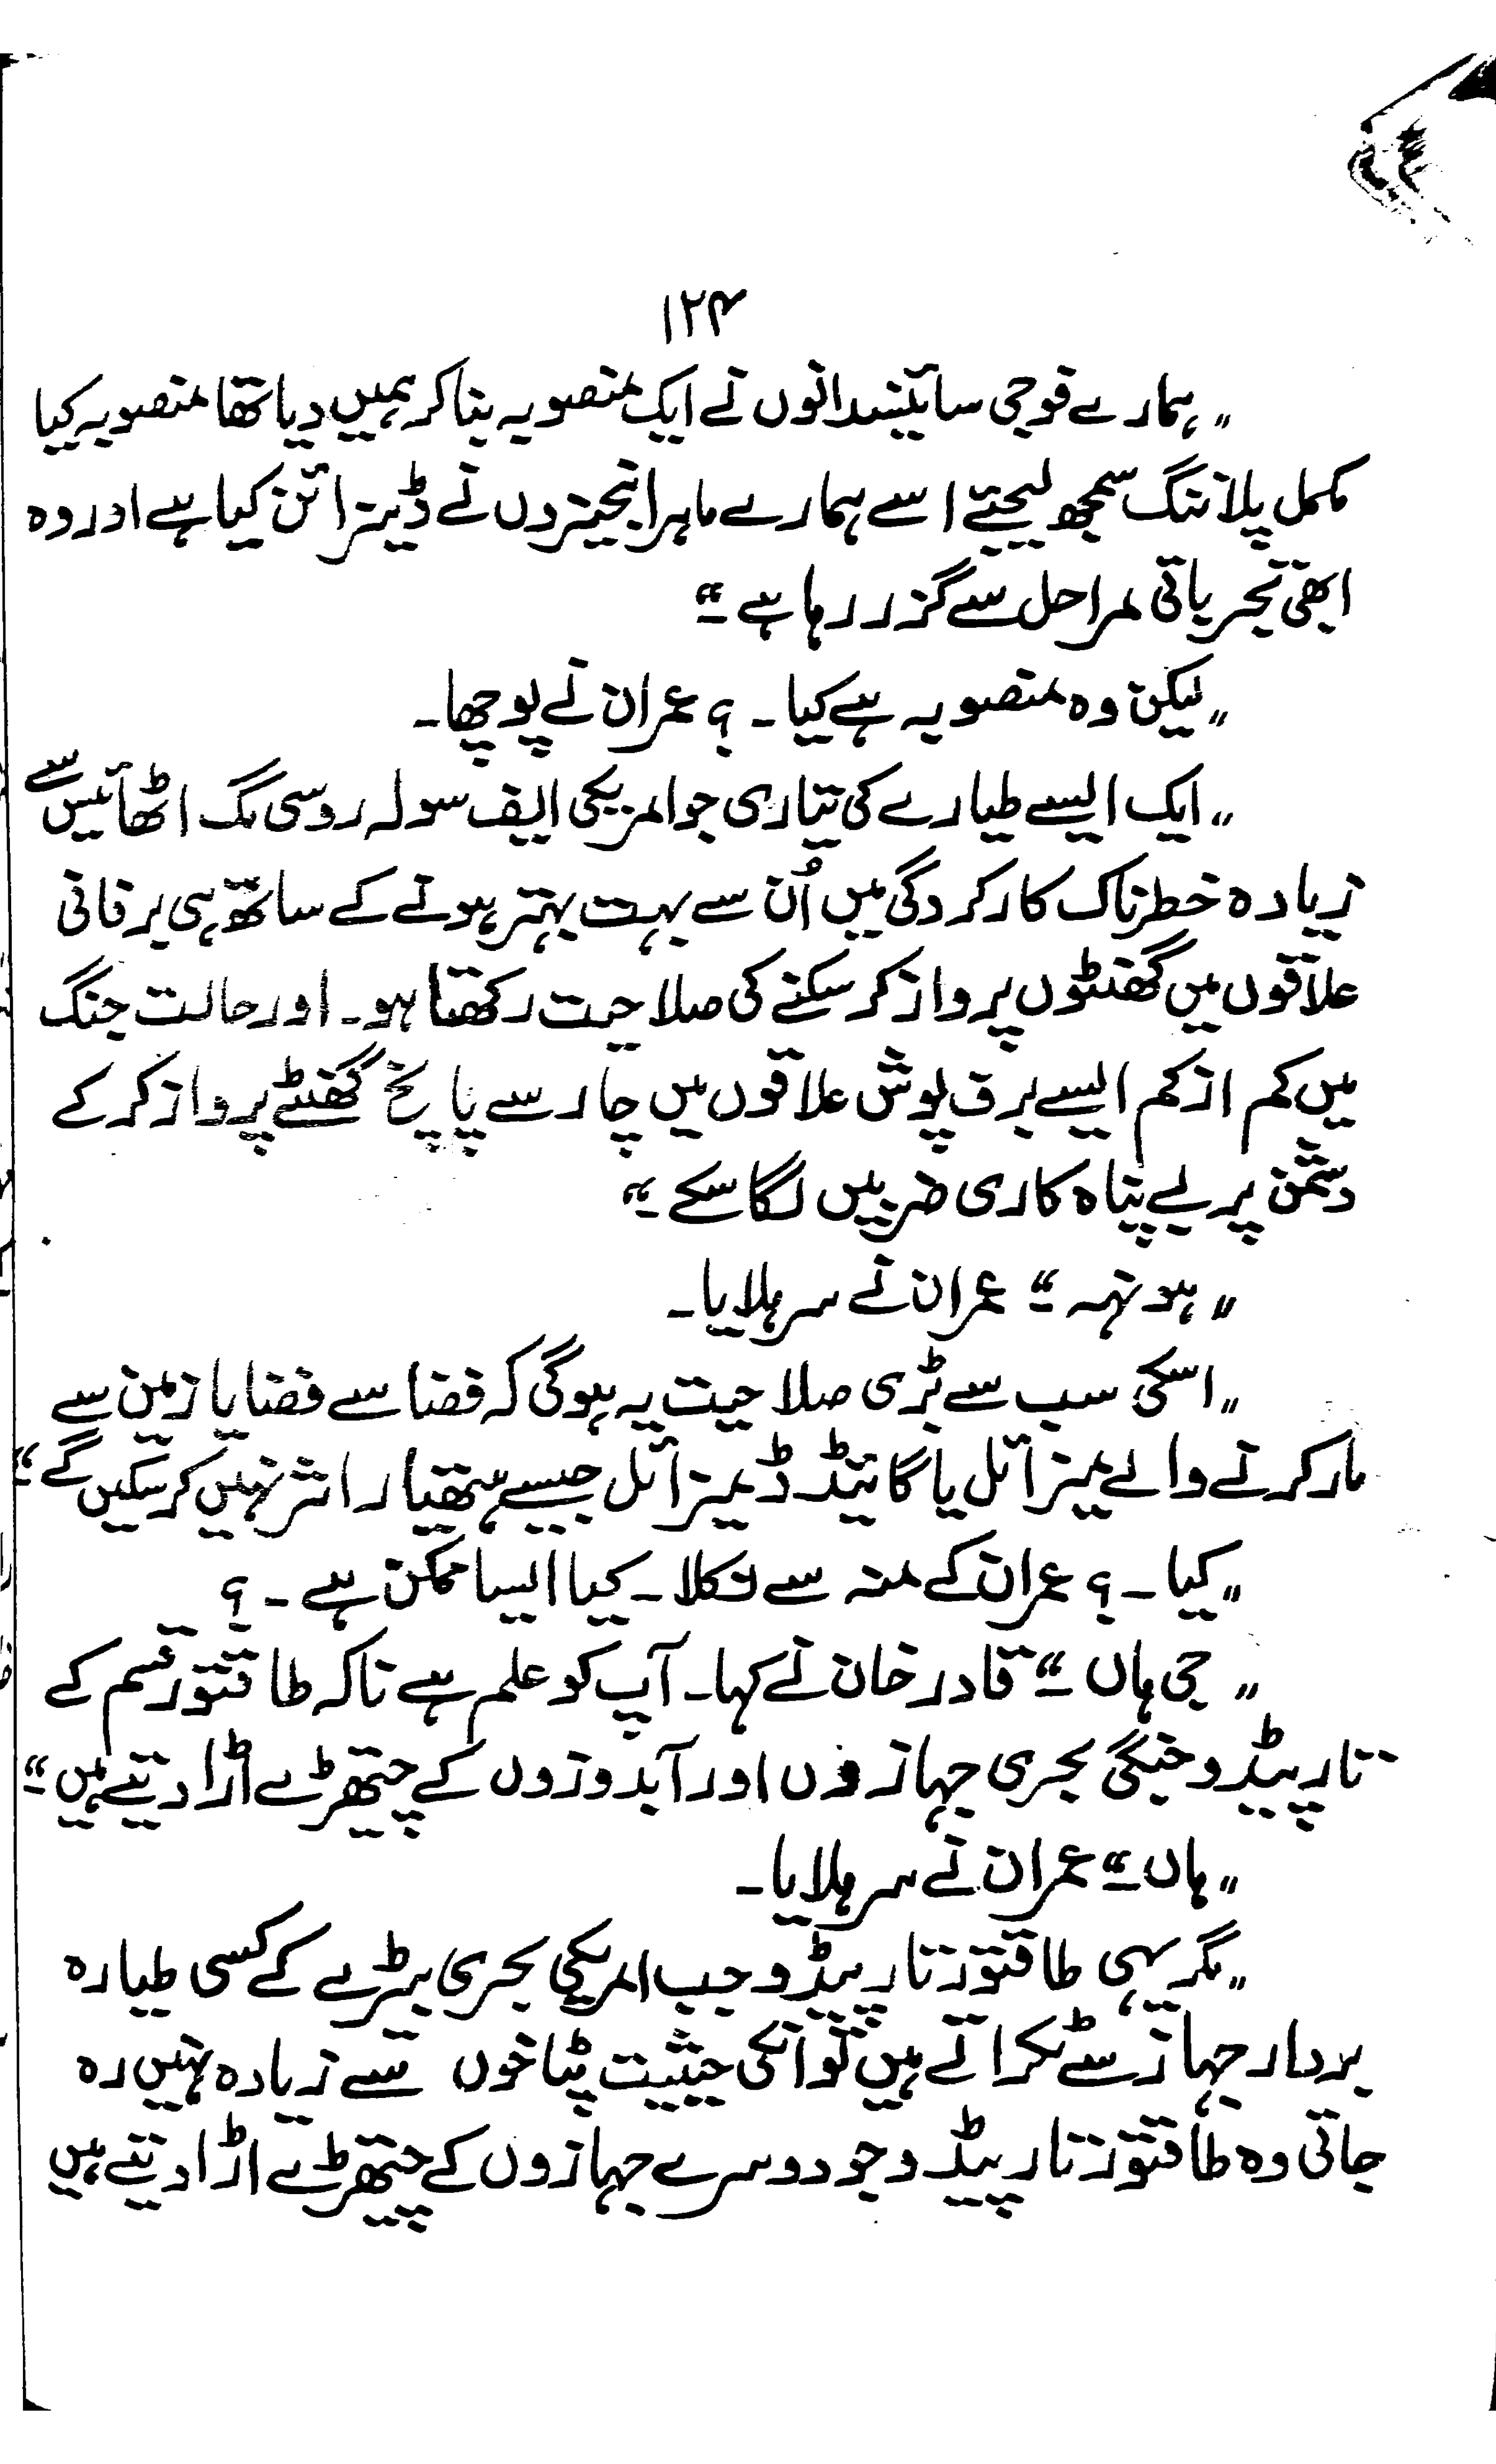 ۱۲۴
„ ہمارے فوجی سائنسدانوں نے ایک منصوبہ بنا کر ہمیں دیا تھا منصوبہ کیا
مکمل پلاننگ سمجھ لیجئے اسے ہمارے ماہر انجینئروں نے ڈیزائن کیا ہے اور وہ
ابھی تجرباتی مراحل سے گزر رہا ہے ۔“
„ لیکن وہ منصوبہ ہے کیا ۔ ؟ عمران نے پوچھا ۔
„ ایک ایسے طیارے کی تیاری جو امریکی ایف سولہ روسی مگ اٹھائیس سے
زیادہ خطرناک کارکردگی میں اُن سے بہت بہتر ہونے کے ساتھ ہی برفانی
علاقوں میں گھنٹوں پرواز کر سکنے کی صلاحیت رکھتا ہو ۔ اور حالت جنگ
میں کم از کم ایسے برف پوش علاقوں میں چار سے پانچ گھنٹے پرواز کر کے
دشمن پر بے پناہ کاری ضربیں لگا سکے ۔“
„ ہونہہ ۔“ عمران نے سر ہلایا ۔
„ اسکی سب سے بڑی صلاحیت یہ ہوگی کہ فضا سے فضا یا زمین سے
مار کرنے والے میزائل یا گائیڈڈ میزائل جیسے ہتھیار اثر نہیں کر سکیں گے ۔“
„ کیا ۔ ؟ عمران کے منہ سے نکلا ۔ کیا ایسا ممکن ہے ۔ ؟
„ جی ہاں ۔“ قادر خان نے کہا ۔ آپ کو علم ہے نا کہ طاقتور قسم کے
تارپیڈو جنگی بحری جہازوں اور آبدوزوں کے چیتھڑے اڑا دیتے ہیں ۔“
„ ہاں ۔“ عمران نے سر ہلایا ۔
„ مگر یہی طاقتور تارپیڈو جب امریکی بحری بیڑے کے کسی طیارہ
بردار جہاز سے ٹکراتے ہیں تو انکی حیثیت پٹاخوں سے زیادہ نہیں رہ
جاتی وہ طاقتور تارپیڈو جو دوسرے جہازوں کے چیتھڑے اڑا دیتے ہیں